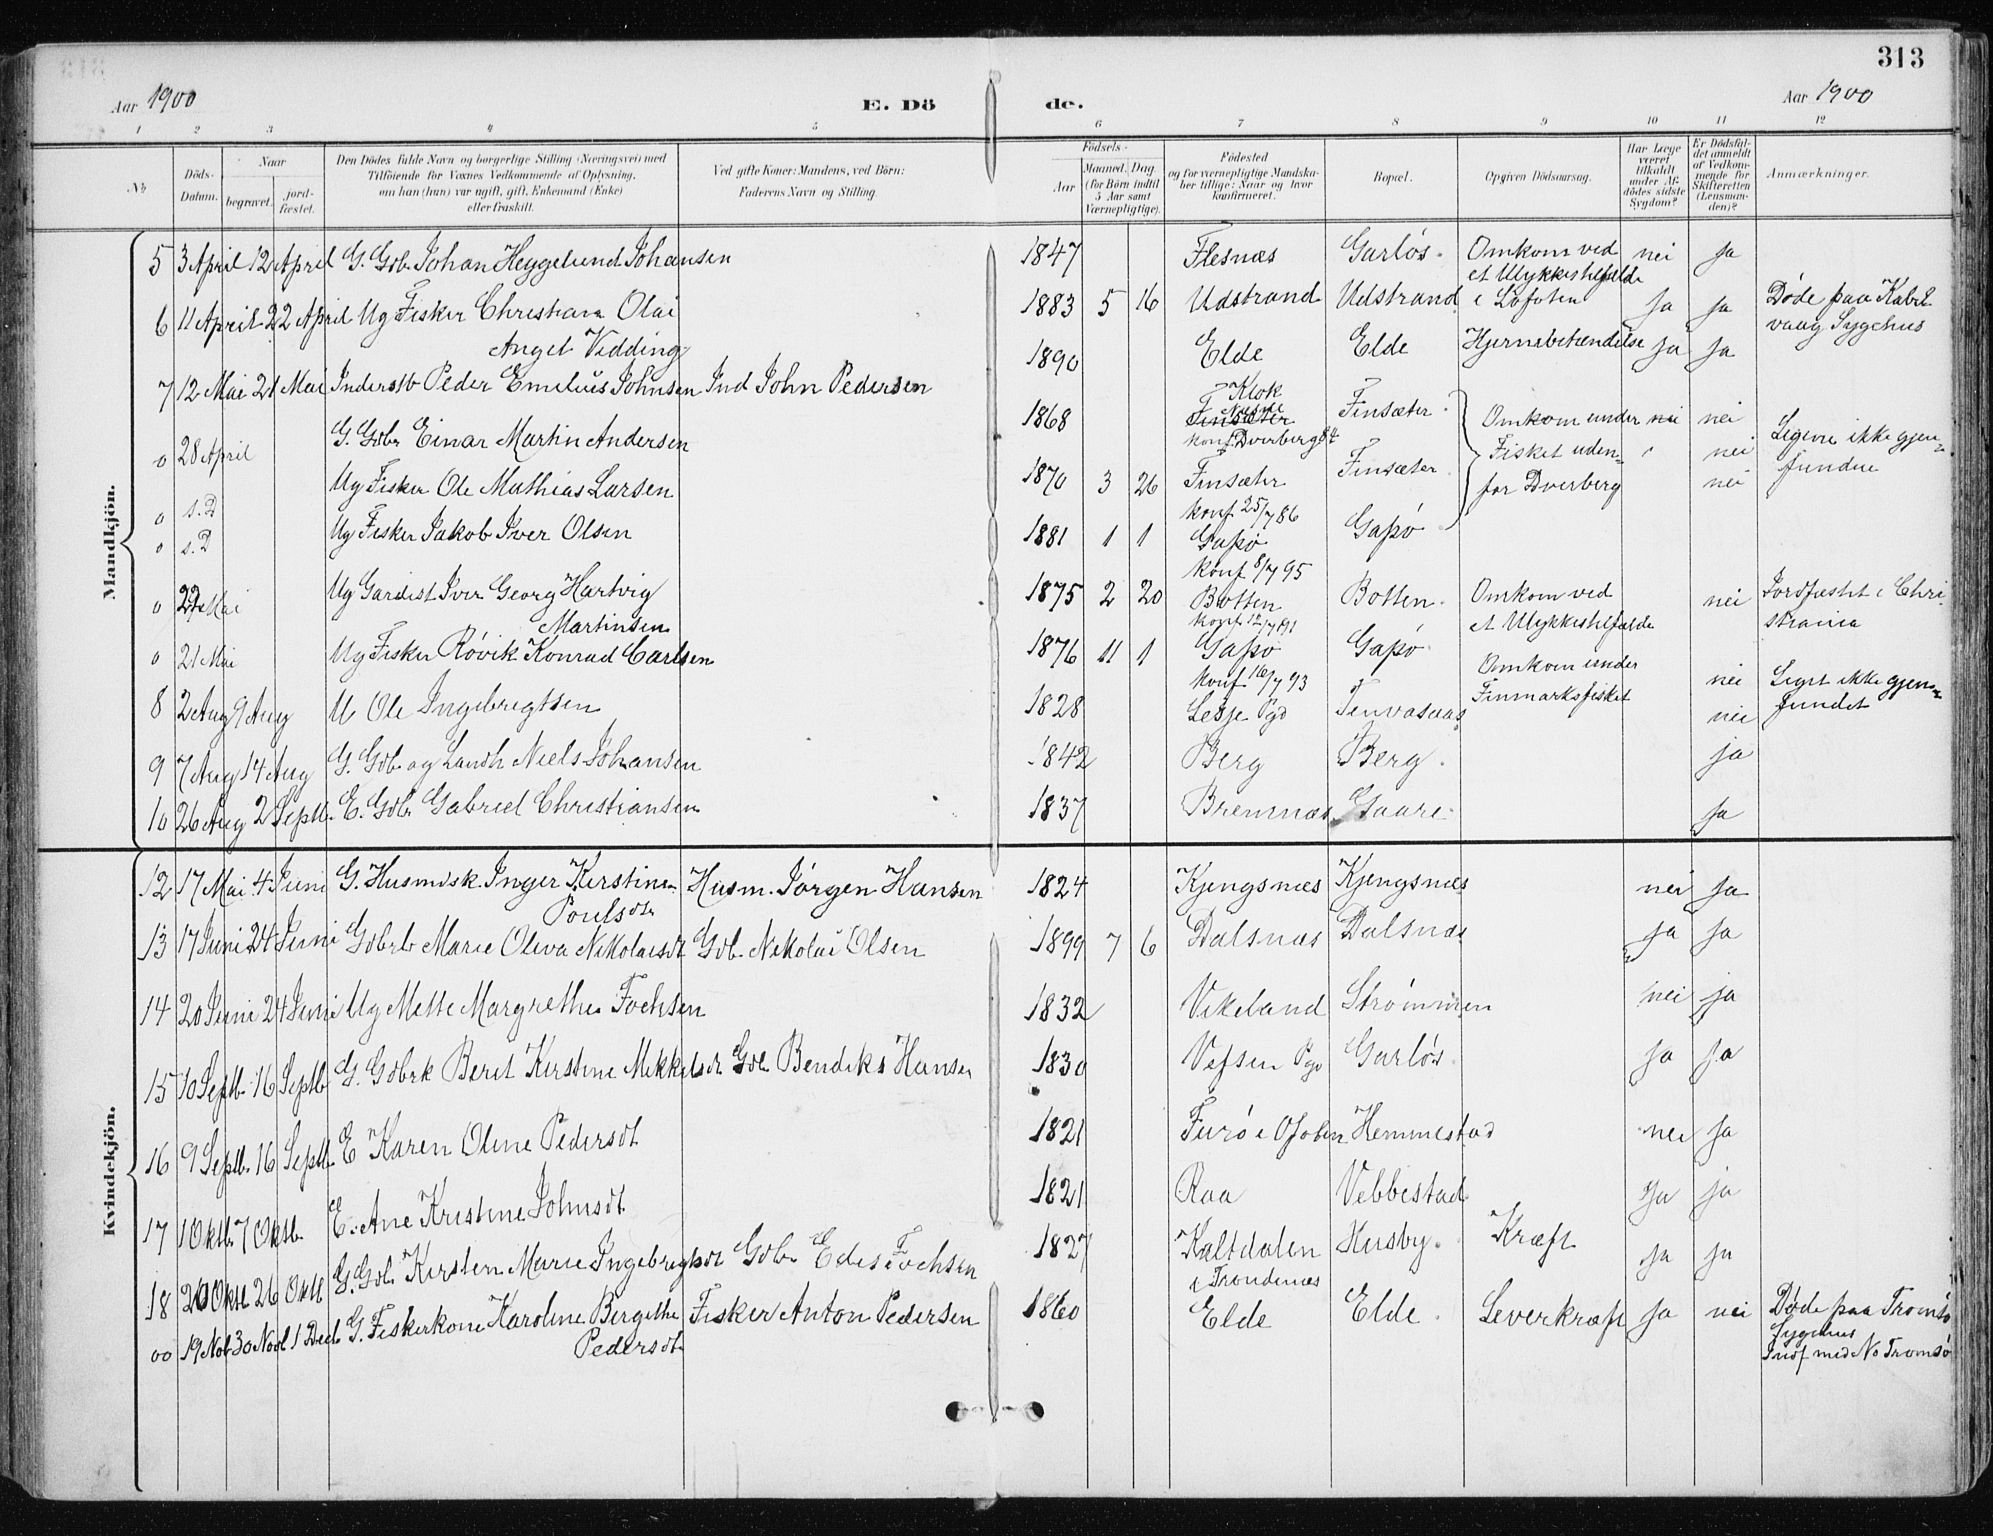 313
Aar 1900
E. Dö de.
Aar 1900
1 2 3 4 5 6 7 8 9 10 11 12
No
Döds-Datum.
Naar
begravet.
jord-fæstet.
Den Dödes fulde Navn og borgerlige Stilling (Næringsvei) med
Tilföiende for Voxnes Vedkommende af Oplysning,
om han (hun) var ugift, gift, Enkemand (Enke)
eller fraskilt.
Ved gifte Koner: Mandens, ved Börn:
Faderens Navn og Stilling.
Födsels-
Aar
Maaned. Dag.
(for Börn indtil
5 Aar samt
Værnepligtige).
Födested
og for værnepligtige Mandska-
ber tillige: Naar og hvor
konfirmeret.
Bopæl.
Opgiven Dödsaarsag.
Har Læge
været
tilkaldt
under Af-
dödes sidste
Sygdom?
Er Dödsfal-
det anmeldt
af Vedkom-
mende for
Skifteretten
(Lensman-
den)?
Anmærkninger.
Mandkjön.
5 3 April 12 April G. Gbr. Johan Heggelund Johansen 1847 Flesnæs Garløs. Omkom ved et Ulykkestilfælde i Lofoten nei ja
6 11 April 22 April Ug Fisker Christian Olai Angel Vedding 1883 5 16 Udstrand Udstrand Hjernebetændelse ja ja Døde paa Kabelvaag Sygehus
7 12 Mai 21 Mai Inderstb Peder Emelius Johnsen Ind John Pedersen 1890 Elde Elde ja ja
0 28 April G. Gbr Einar Martin Andersen 1868 Finsæter Klok konf Dverberg 84 Finsæter. Omkom under Fisket udenfor Dverberg nei nei Ligene ikke gjenfundne
0 s.D Ug Fisker Ole Mathias Larsen 1870 3 26 Finsæter konf 25/7 86 Finsæter. nei
0 s.D Ug Fisker Jakob Iver Olsen 1881 1 1 Gapø konf 8/7 95 Gapø nei
0 Mai Ug Gardist Iver Georg Hartvig Martinsen 1875 2 20 Botten konf 12/7 91 Botten. Omkom ved et Ulykkestilfælde nei Jordfæstet i Christiania
0 21 Mai Ug Fisker Røvik Konrad Carlsen 1876 11 1 Gapø konf 16/7 93 Gapø Omkom under Finmarksfisket nei Liget ikke gjenfundet
8 2 Aug 9 Aug U Ole Ingebrigtsen 1828 Lesje Pgd Tenvasaas nei
9 7 Aug 14 Aug G. Gbr og Landh Niels Johansen 1842 Berg Berg. ja
10 26 Aug 2 Septb. E. Gbr Gabriel Christiansen 1837 Bremnæs Gaare. ja
Kvindekjön.
12 17 Mai 4 Juni G. Husmdsk. Inger Kirstine Poulsdtr Husm. Jørgen Hansen 1824 Kjengsnæs Kjengsnæs nei ja
13 17 Juni 24 Juni Gbrb Marie Oliva Nikolaisdt Gbr. Nikolai Olsen 1899 7 6 Dalsnæs Dalsnæs ja ja
14 20 Juni 24 Juni Ug Mette Margrethe Fochsen 1832 Vikeland Strømmen nei ja
15 10 Septb. 16 Septb G. Gbrk Berit Kirstine Mikkelsdt Gbr Bendiks Hansen 1830 Vefsen Pgd Garløs. ja ja
16 9 Septb. 16 Septb. E Karen Oline Pedersdt 1821 Furø i Ofoten Hemmestad nei ja
17 1 Oktb. 7 Oktb. E. Ane Kristine Johnsdt 1821 Raa Vebbestad ja ja
18 20 Oktb 26 Oktb G. Gbr. Kirsten Marie Ingebrigtsdt Gbr. Edis Fochsen 1827 Kaltdalen i Trondenæs Husby. Kræft ja ja
00 19 Novb 30 Novb 1 Decb G. Fiskerkone Karoline Bergithe Pedersdt. Fisker Anton Pedersen 1860 Elde Elde. Leverkræft ja nei Døde paa Tromsø Sygehus
Indf med No Tromsø